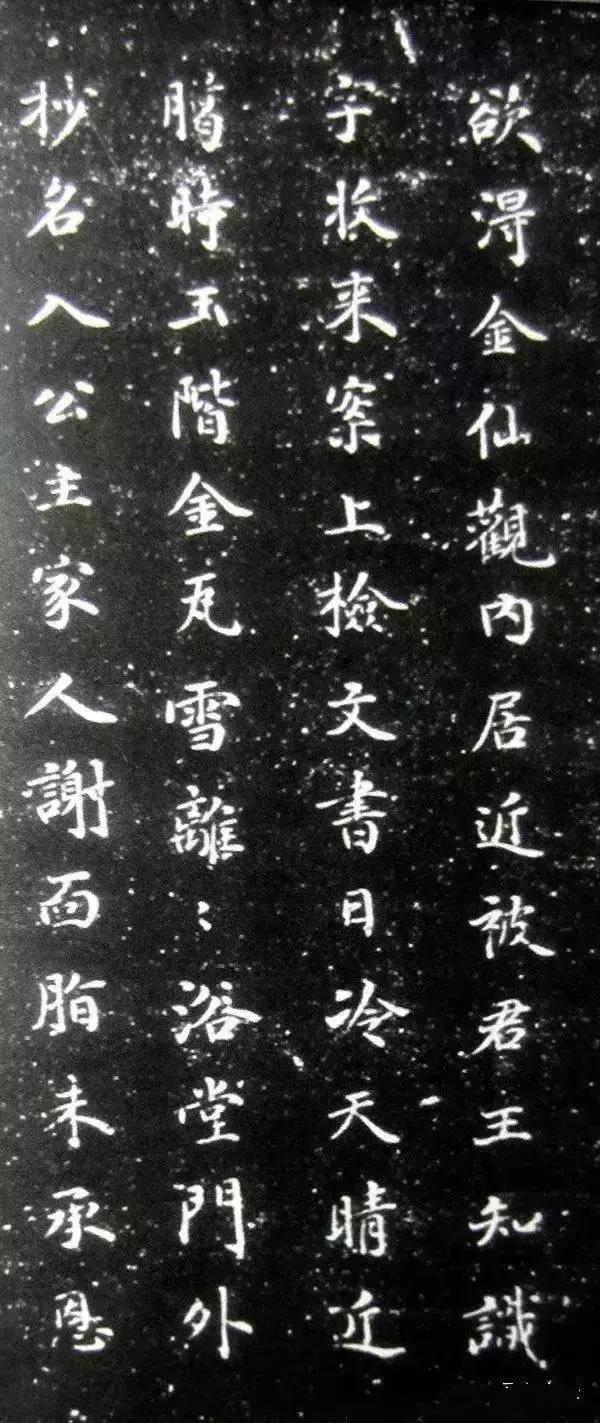 欲得金仙觀内居近被君王知識
字收来案上檢文書日冷天晴近
臈時玉階金瓦雪離〻浴堂門外
抄名入公主家人謝面脂未承恩